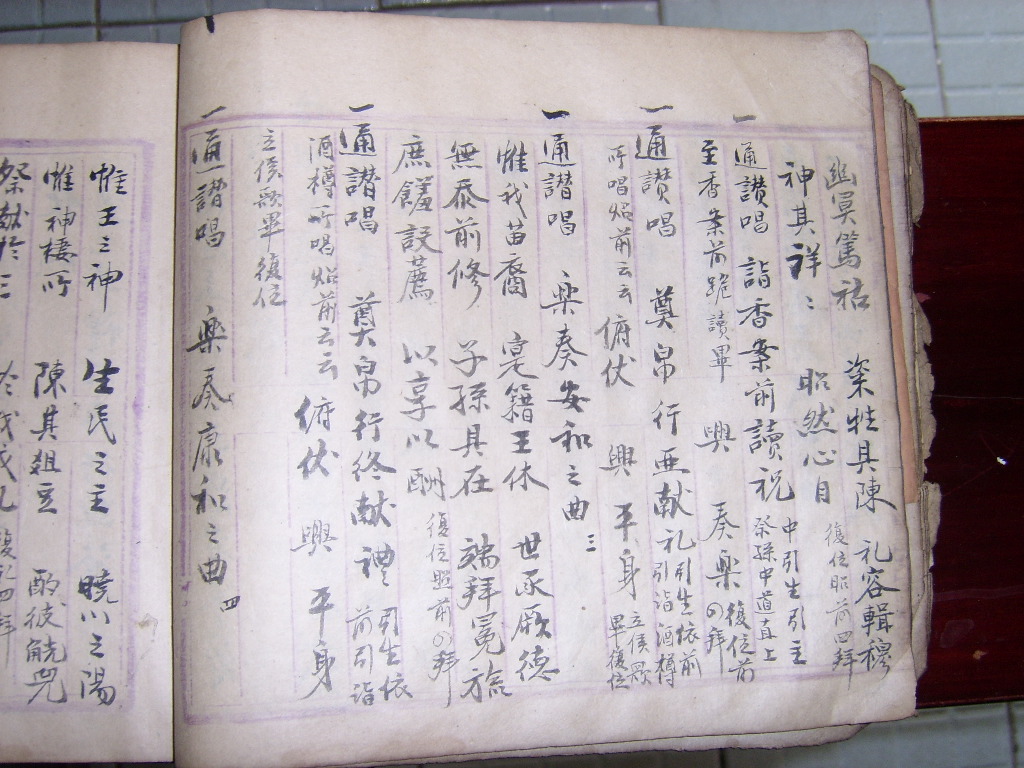 幽冥篤祜 粢牲具陳 礼容輯穆
神其祥〻 昭然心目 復位昭前四拜
一通讃唱 詣香案前讀祝 中引生引主祭孫中道直上
至香案前跪讀畢 興 奏樂 復位前の拜
一通讃唱 奠帛 行亜献礼 引生依前引詣酒樽
所唱炤前云云 俯伏 興 平身 立俟歌畢復位
一通譛唱 樂奏安和之曲 三
惟我苗裔 寔籍王休 世承厥德
無忝前修 子孫具在 端拜冕旒
庶饈設薦 以享以酬 復位照前の拜
一通譛唱 奠帛行终献禮 引生依前引詣
酒樽所唱炤前云云 俯伏 興 平身
立俟歌畢復位
一通譛唱 樂奏康和之曲 四
惟王之神 生民之主 曉以之陽
惟神棲所 陳其俎豆 酌彼觥兕
祭献於三